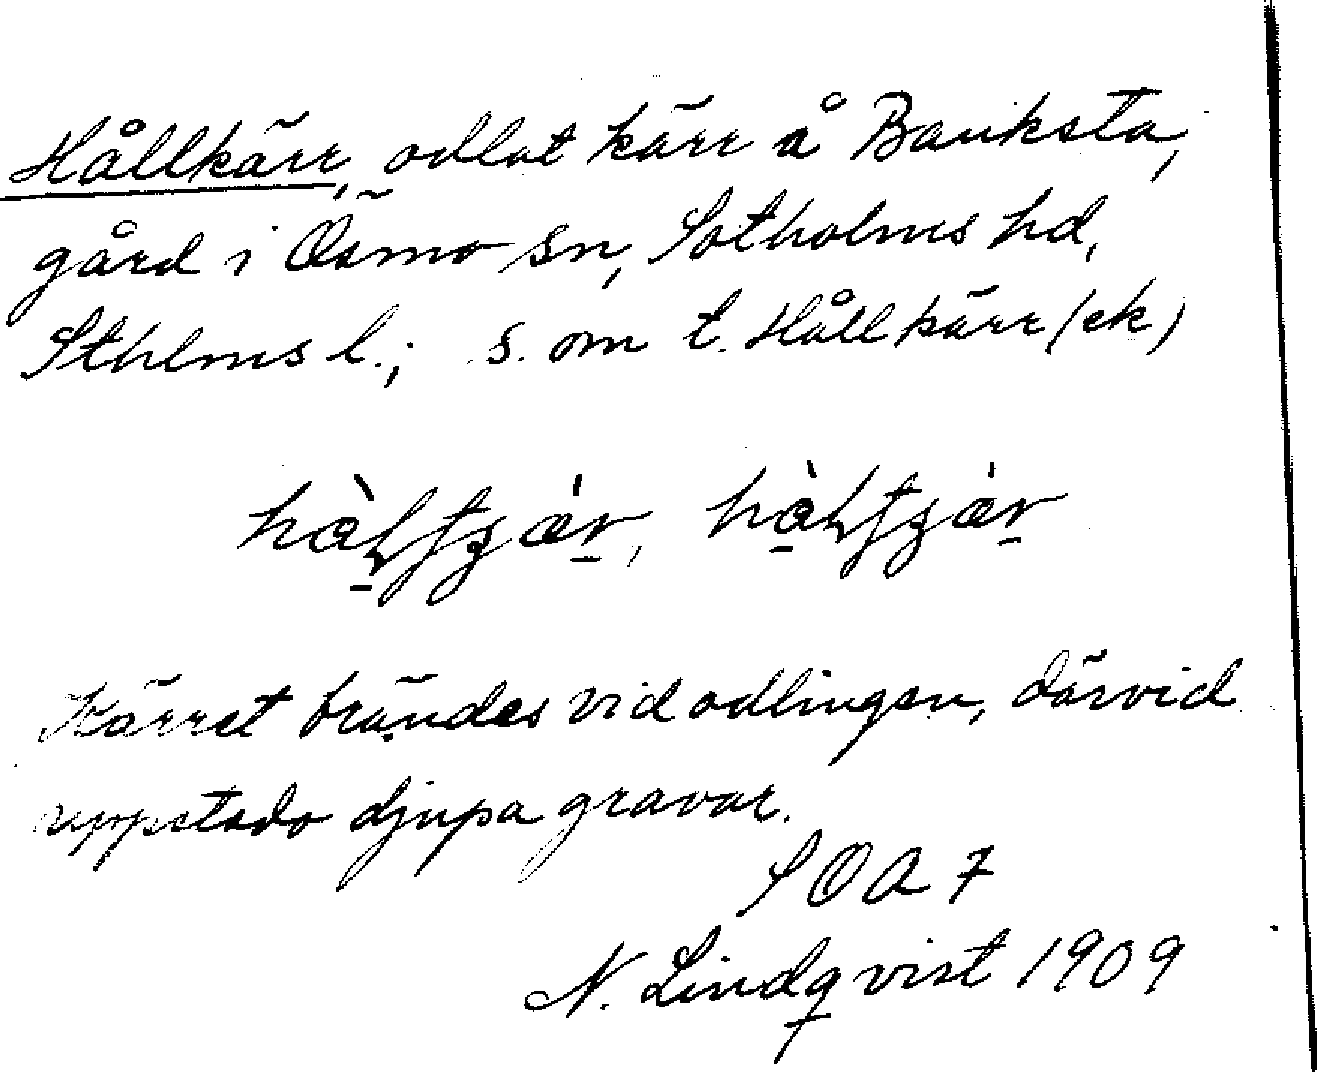 Hållkärr, odlat kärr å Bauksta,
gård i Ösmo sn, Sotholms hd,
Sthlms l.; s. om t. Hållkärr (ek)
Kärret brändes vid odlingen, därvid
uppstodo djupa gravar.
SOA 7
N. Lindqvist 1909